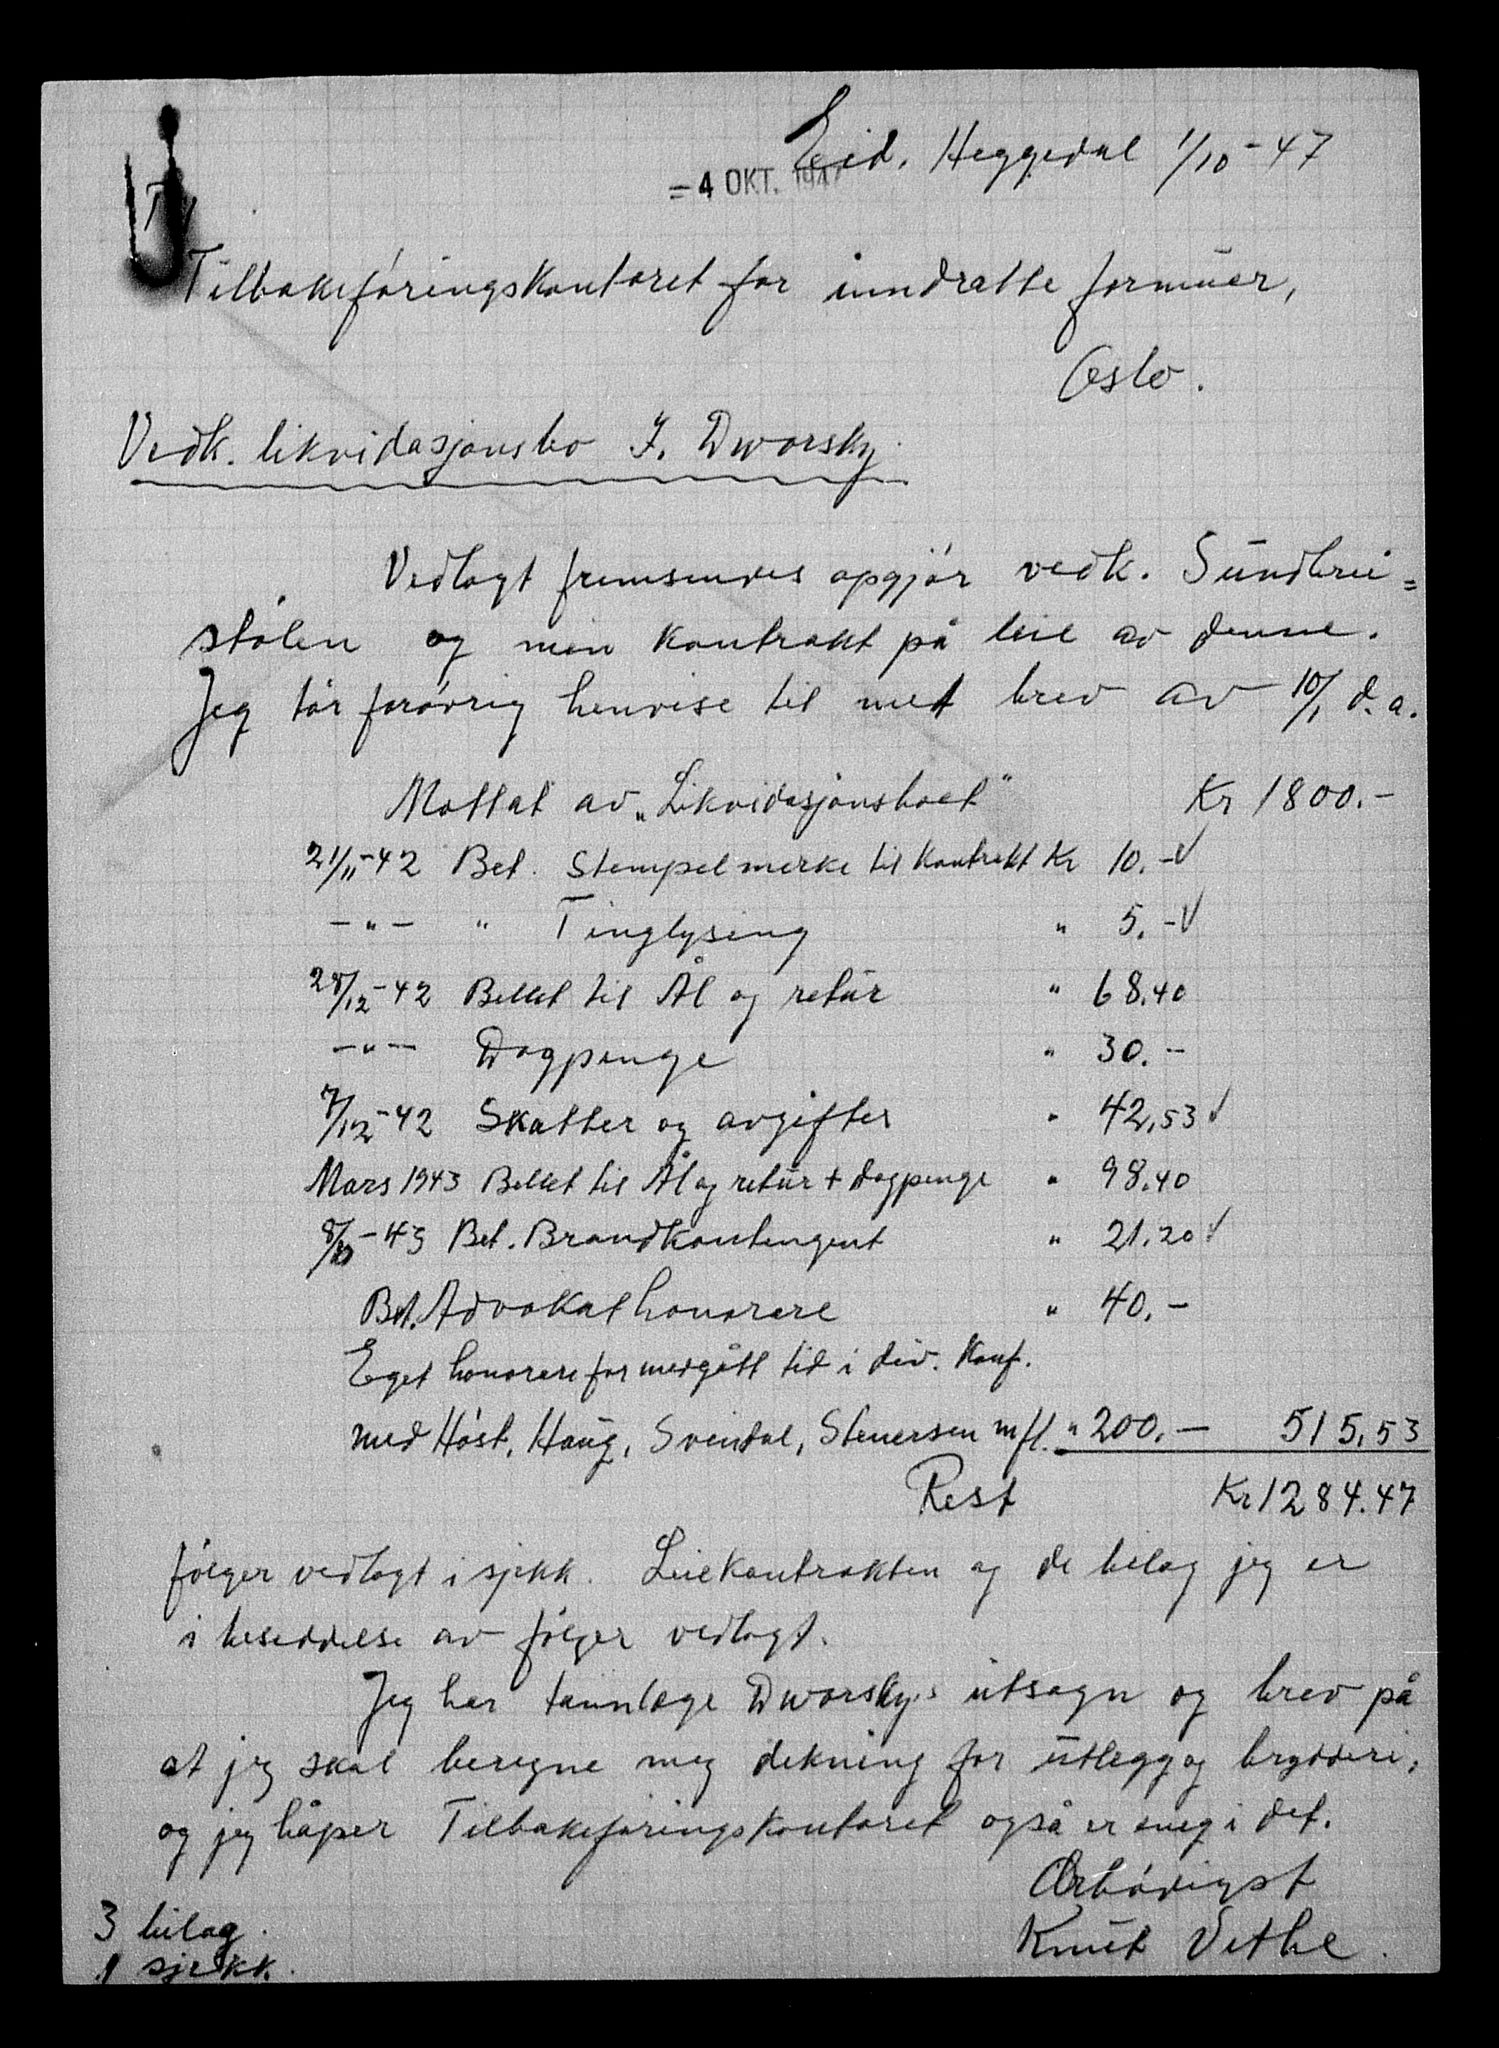 Eid, Heggedal 1/10-47
= 4 OKT. 1947
Tilbakeføringskontoret for inndratte formuer,
Oslo.
Vedk. likvidasjonsbo I. Dworsky.
Vedlagt fremsendes opgjør vedk. Sundbrei=
stølen og min kontrakt på leie av denne.
Jeg tør forøvrig henvise til mitt brev av 10/1 d.a.
Mottat av „Likvidasjonsboet" Kr 1800.-
21/11-42 Bet. Stempelmerke til kontrakt Kr 10.-
-"- " Tinglysing " 5.-
28/12-42 Billet til Ål og retur " 68.40
-"- Dagpenge " 30.-
7/12-42 Skatter og avgifter " 42,53
Mars 1943 Billet til Ål og retur + dagpenge " 98.40
8/10-43 Bet. Brandkontingent " 21.20
Bet. Advokathonorere " 40.-
Eget honorere for medgått tid i div. Konf.
med Høst, Haug, Svendal, Stenersen mfl. " 200.- 515,53
Rest Kr 1284.47
følger vedlagt i sjekk. Leiekontrakten og de bilag jeg er
i besiddelse av følger vedlagt.
Jeg har tannlæge Dworskys utsagn og brev på
at jeg skal beregne meg dekning for utlegg og brydderi,
og jeg håper Tilbakeføringskontoret også er enig i det.
Ærbødigst
Knut Vethe.
3 bilag.
1 sjekk.